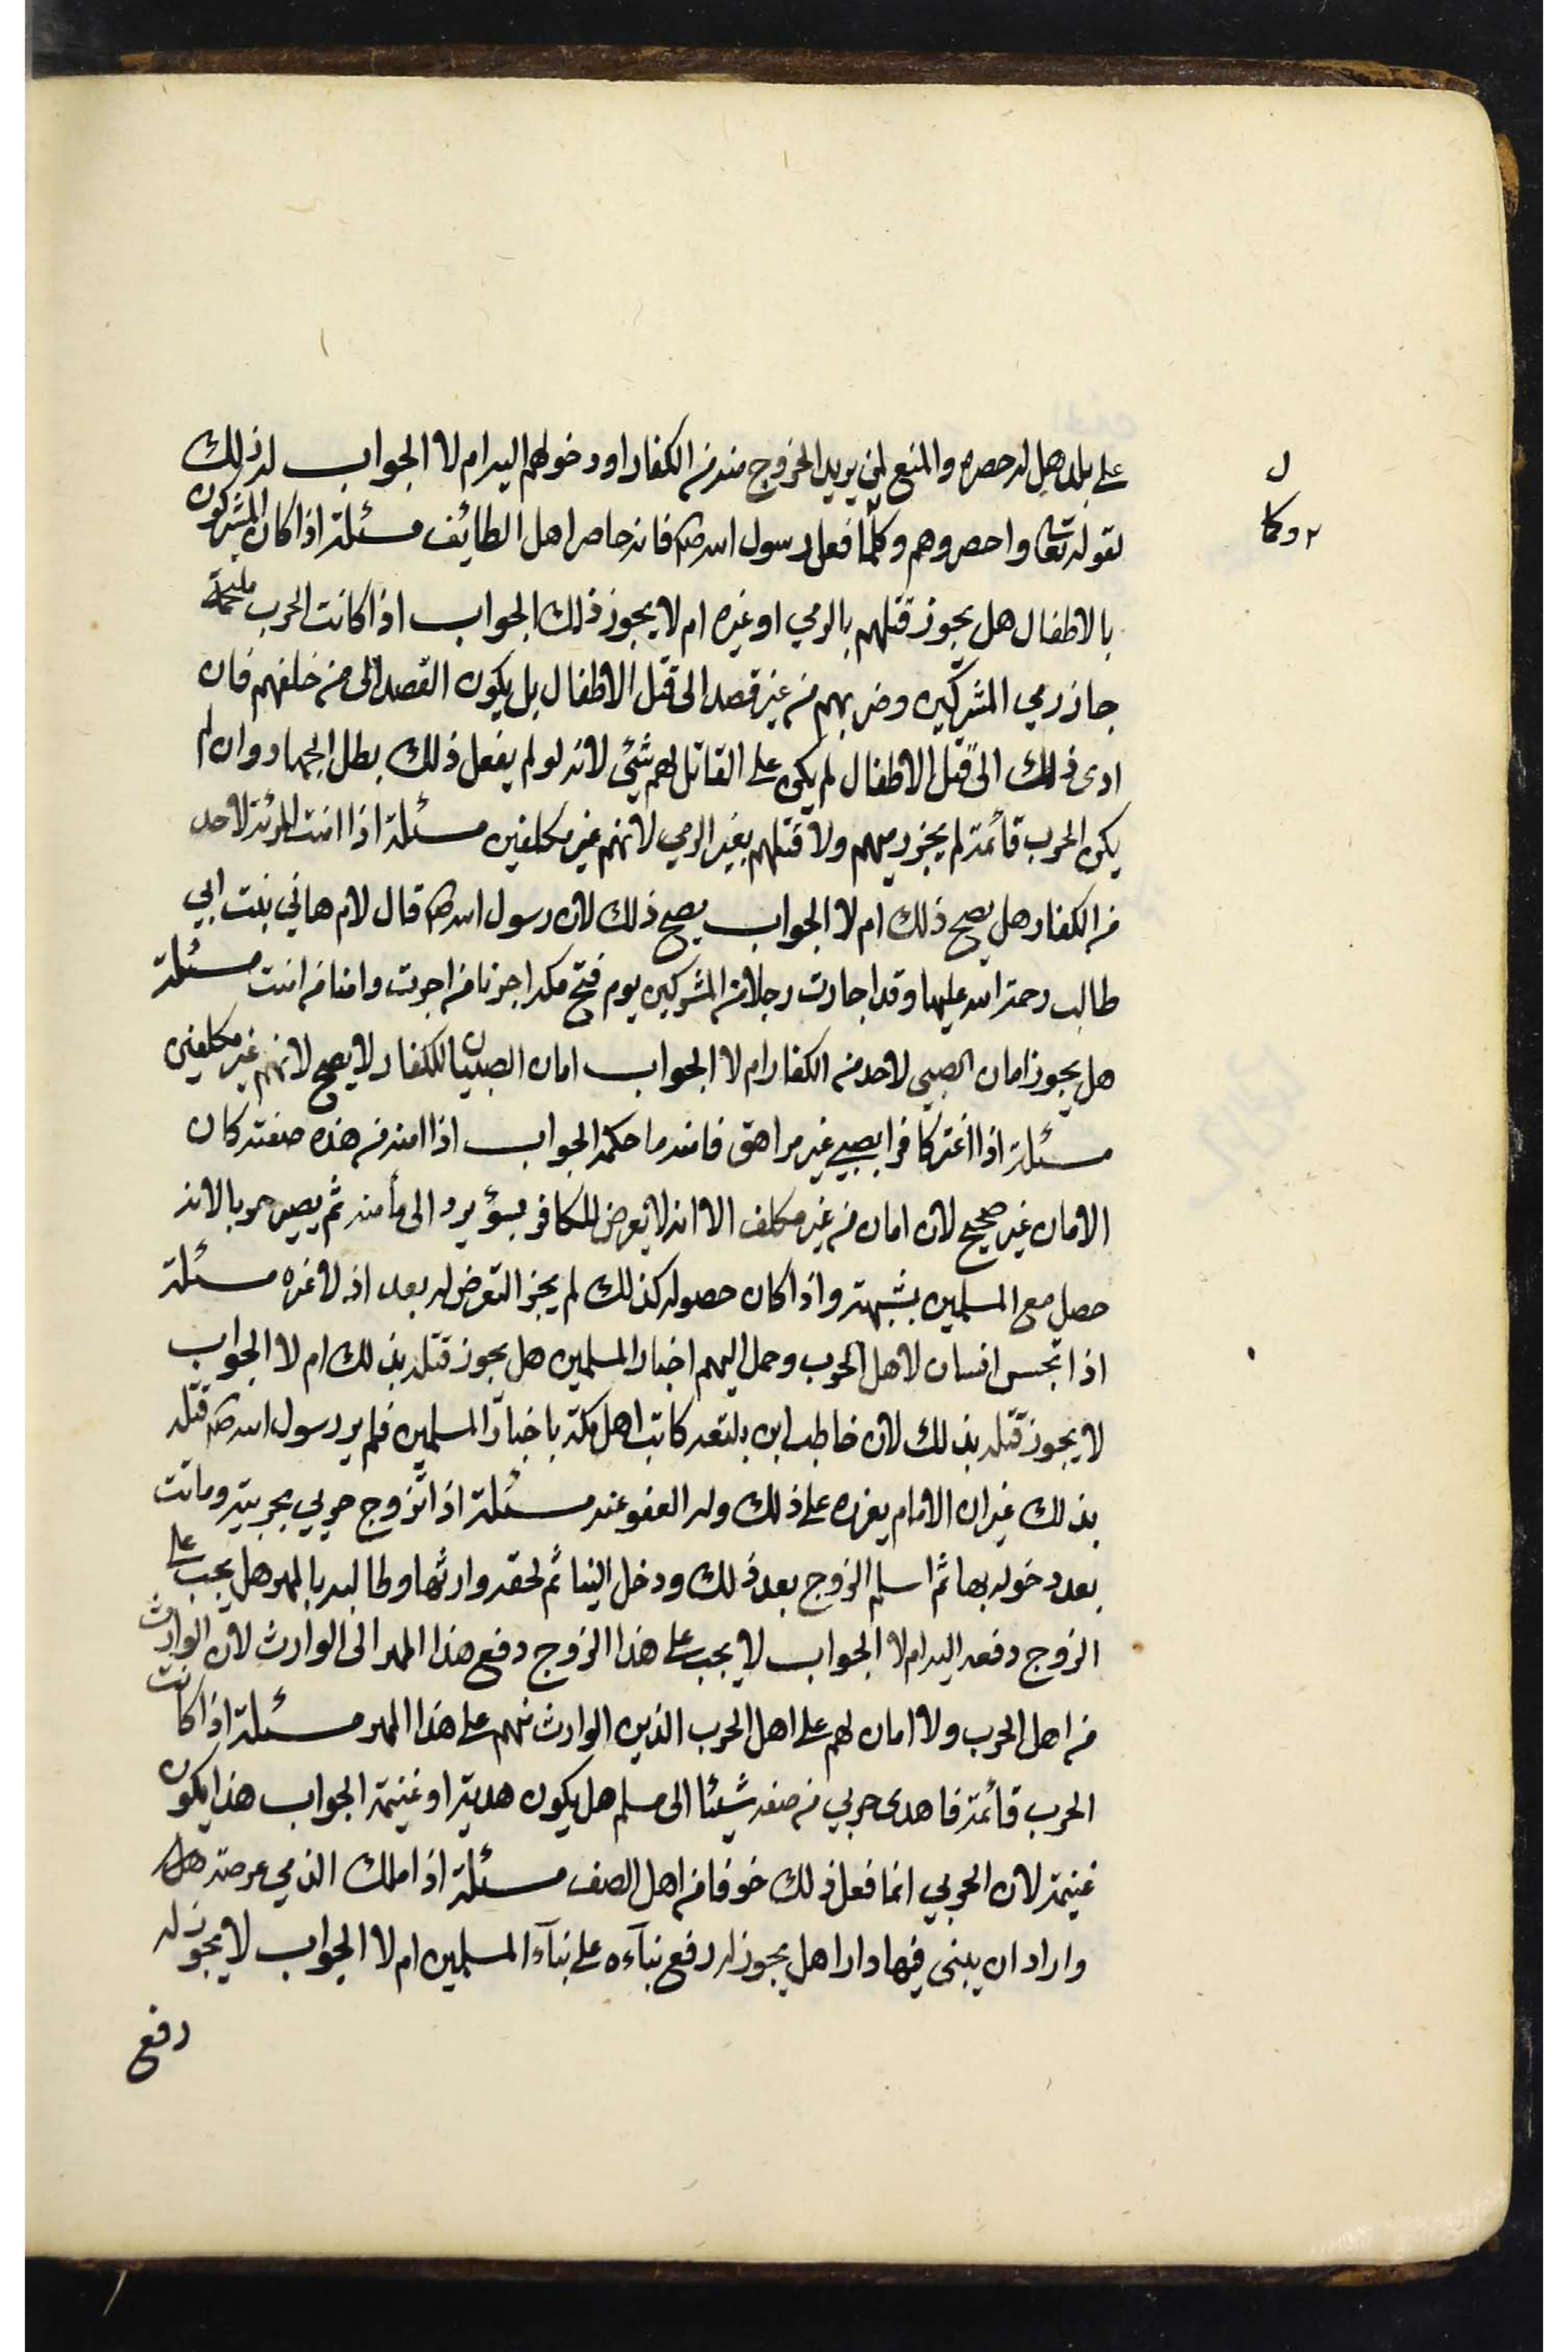 على بلد هل له حصره والمنع لمن يريد الخروج منه من الكفار او دخولهم اليه ام لا الجواب له ذلك
لقوله تعالى واحصروهم وكلما فعل رسول الله ص فانه حاصر اهل الطائف مسئلة اذا كان المشركون
بالاطفال هل يجوز قتلهم بالرمي او غيره ام لا يجوز ذلك الجواب اذا كانت الحرب ملتحمة
جاز رمي المشركين وضربهم من غير قصد الى قتل الاطفال بل يكون القصد الى من خلفهم فان
ادى ذلك الى قتل الاطفال لم يكن على القاتل لهم شئ لانه لو لم يفعل ذلك بطل الجهاد وان لم
يكن الحرب قائمة لم يجز رميهم ولا قتلهم بغير الرمي لانهم غير مكلفين مسئلة اذا امنت المرئة لاحد
من الكفار هل يصح ذلك ام لا الجواب يصح ذلك لان رسول الله ص قال لام هاني بنت ابي
طالب رحمة الله عليها وقد اجارت رجلا من المشركين يوم فتح مكه اجرنا من اجرت وامنا من امنت مسئلة
هل يجوز امان الصبي لاحد من الكفار ام لا الجواب امان الصبيان للكفار لا يصح لانهم غير مكلفين
مسئلة اذا اغتر كافرا بصبي غير مراهق فامنه ما حكمه الجواب اذا امنه من هذه صفته كان
الامان غير صحيح لان امان من غير مكلف الا انه لا يعرض للكافر بسؤ يرد الى مأمنه ثم يصير حربا لانه
حصل مع المسلمين بشبهة واذا كان حصوله كذلك لم يجز التعرض له بعد اذ لا غره مسئلة
اذا تجسس انسان لاهل الحرب وحمل اليهم اخبار المسلمين هل يجوز قتله بذلك ام لا الجواب
لا يجوز قتله بذلك لان خاطب ابن بلتعه كاتب اهل مكة باخبار المسلمين فلم ير رسول الله ص قتله
بذلك غير ان الامام يعزره على ذلك وله العفو عنه مسئلة اذا تزوج حربي بحربية وماتت
بعد دخوله بها ثم اسلم الزوج بعد ذلك ودخل الينا ثم لحقه وارثها وطالبه بالمهر هل يجب على
الزوج دفعه اليه ام لا الجواب لا يجب على هذا الزوج دفع هذا المهر الى الوارث لان الوارث
من اهل الحرب ولا امان لهم على اهل الحرب الذين الوارث منهم على هذا المهر مسئلة اذا كانت
الحرب قائمة فاهدى حربي من صفه شيئا الى مسلم هل يكون هدية او غنيمة الجواب هذا يكون
غنيمة لان الحربي انما فعل ذلك خوفا من اهل الصف مسئلة اذا ملك الذمي عرصة هل
واراد ان يبنى فيها دارا هل يجوز له رفع بنآءه على بنآء المسلمين ام لا الجواب لا يجوز له
رفع
ل
٢ وكما